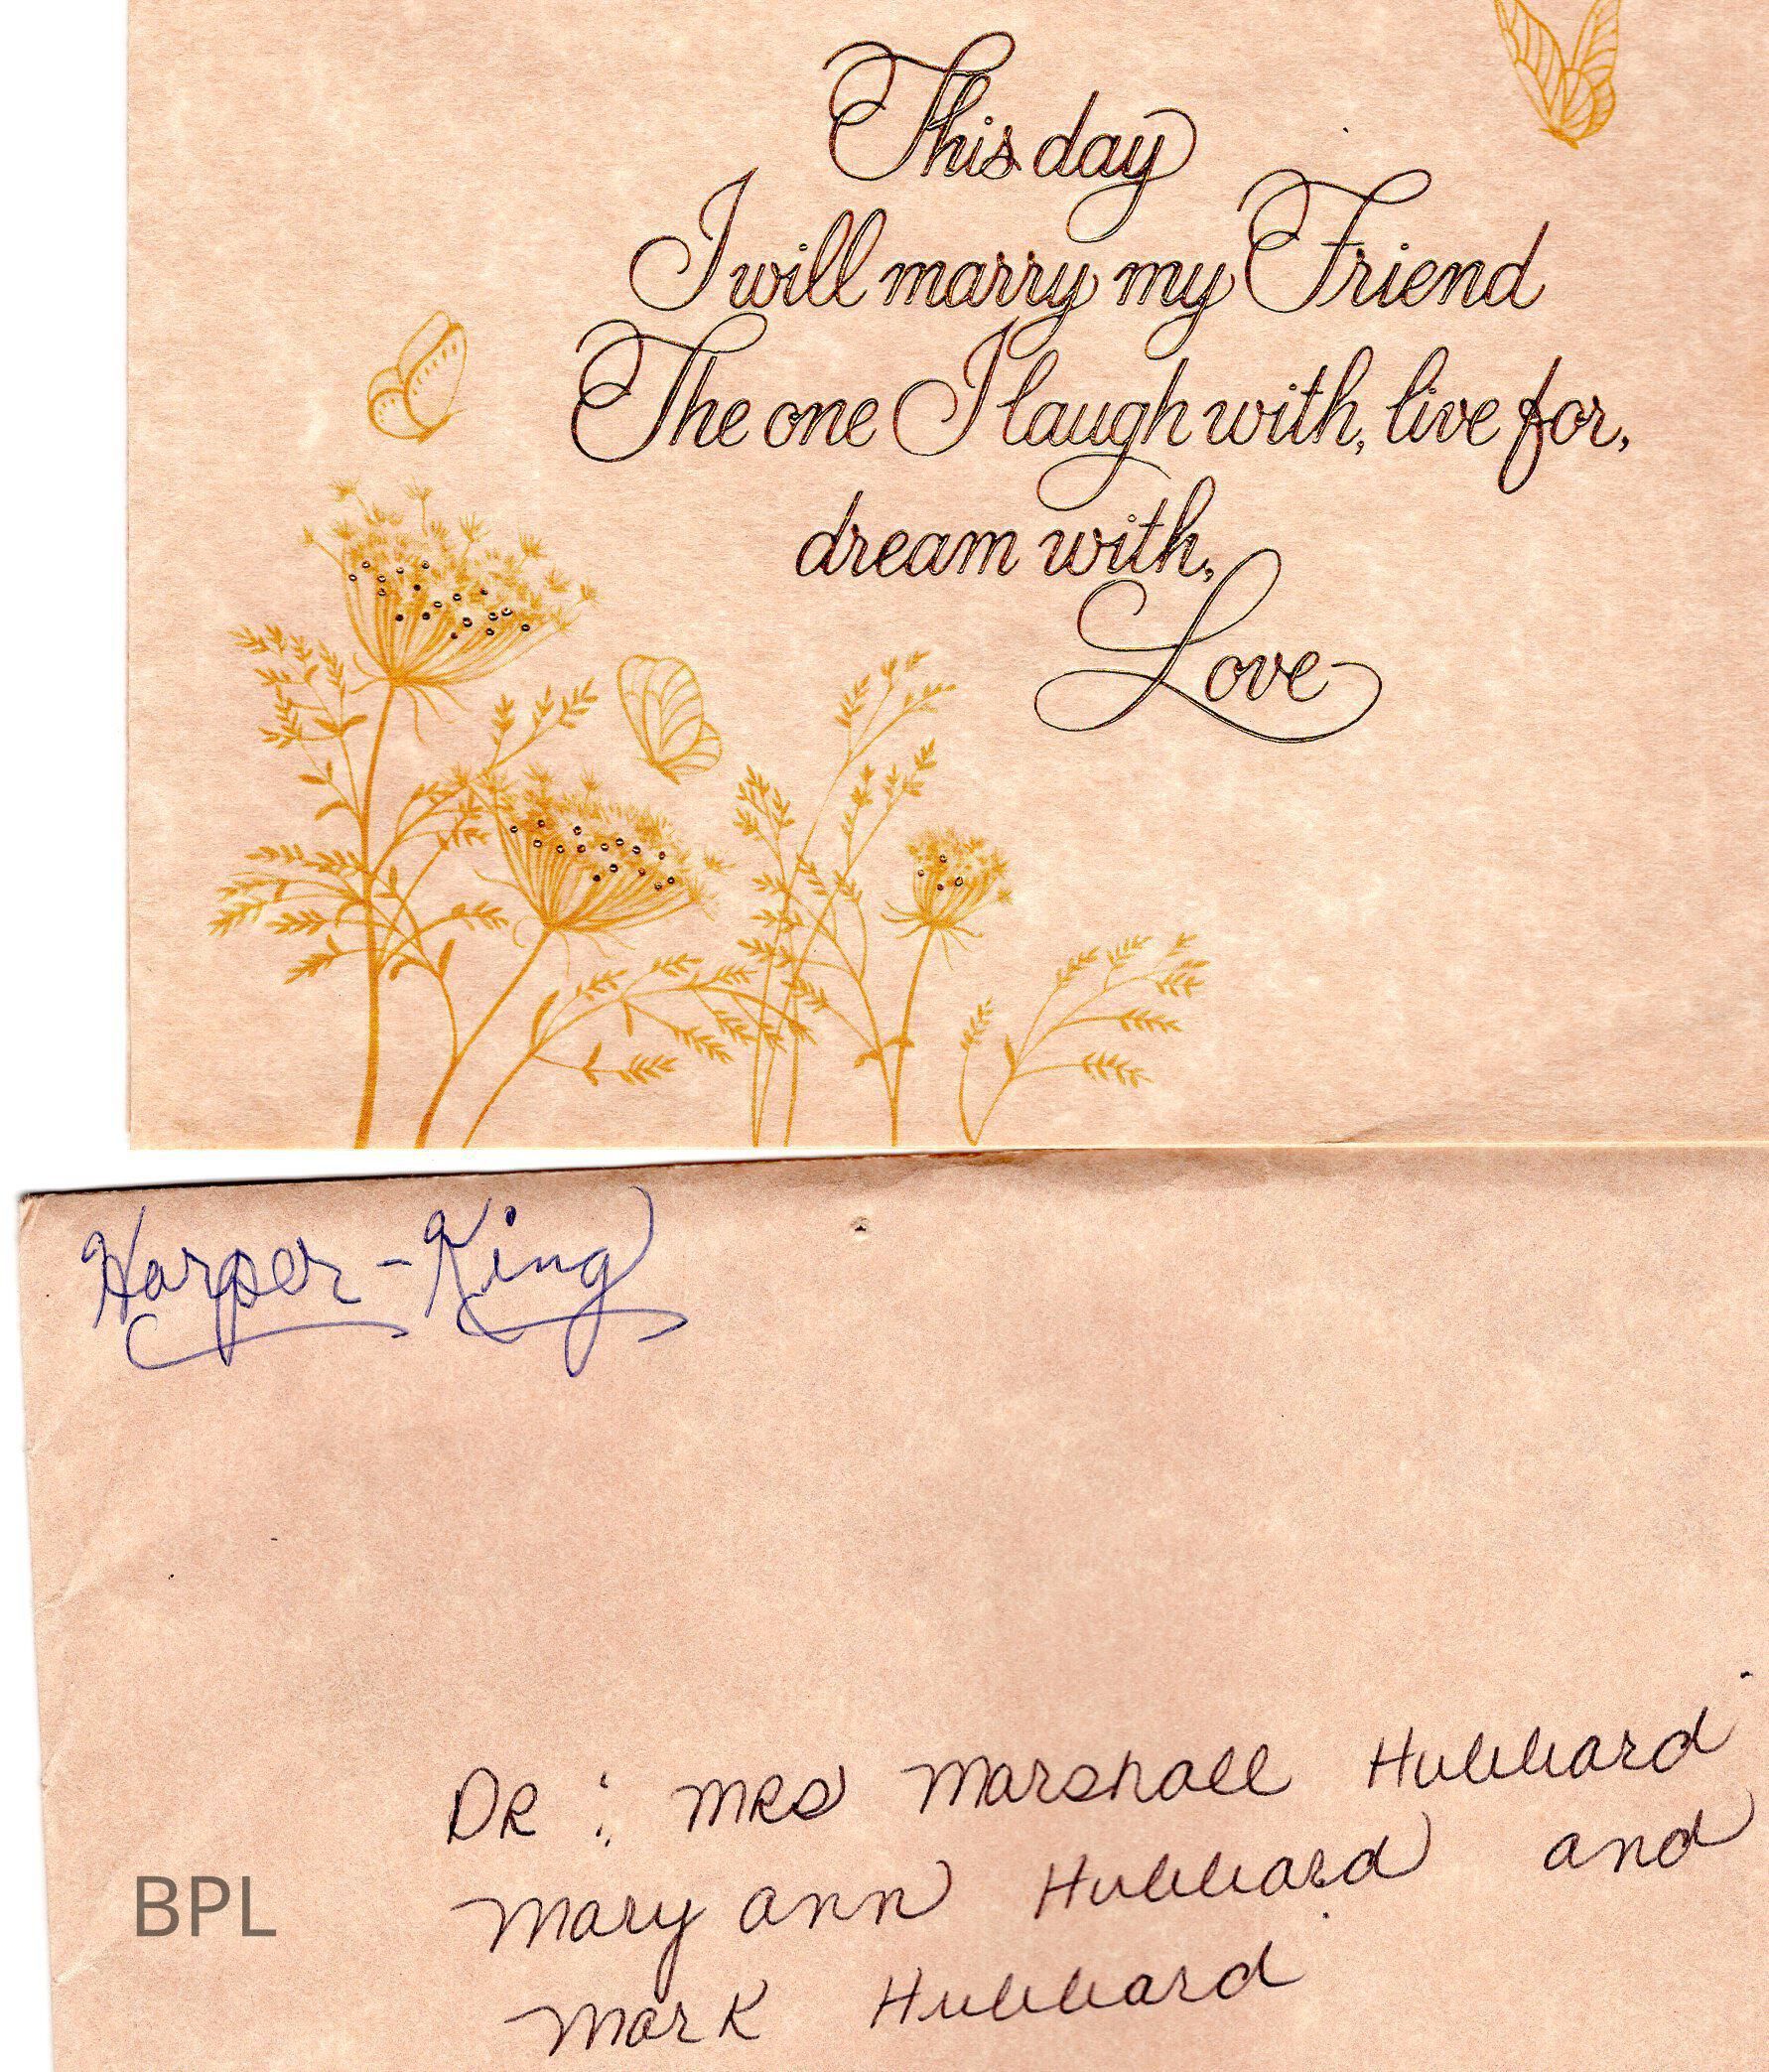 This day
I will marry my Friend
The one I laugh with, live for,
dream with,
Love
Harper-King
DR & MRS Marshall Hubbard
Mary Ann Hubbard and
Mark Hubbard
BPL